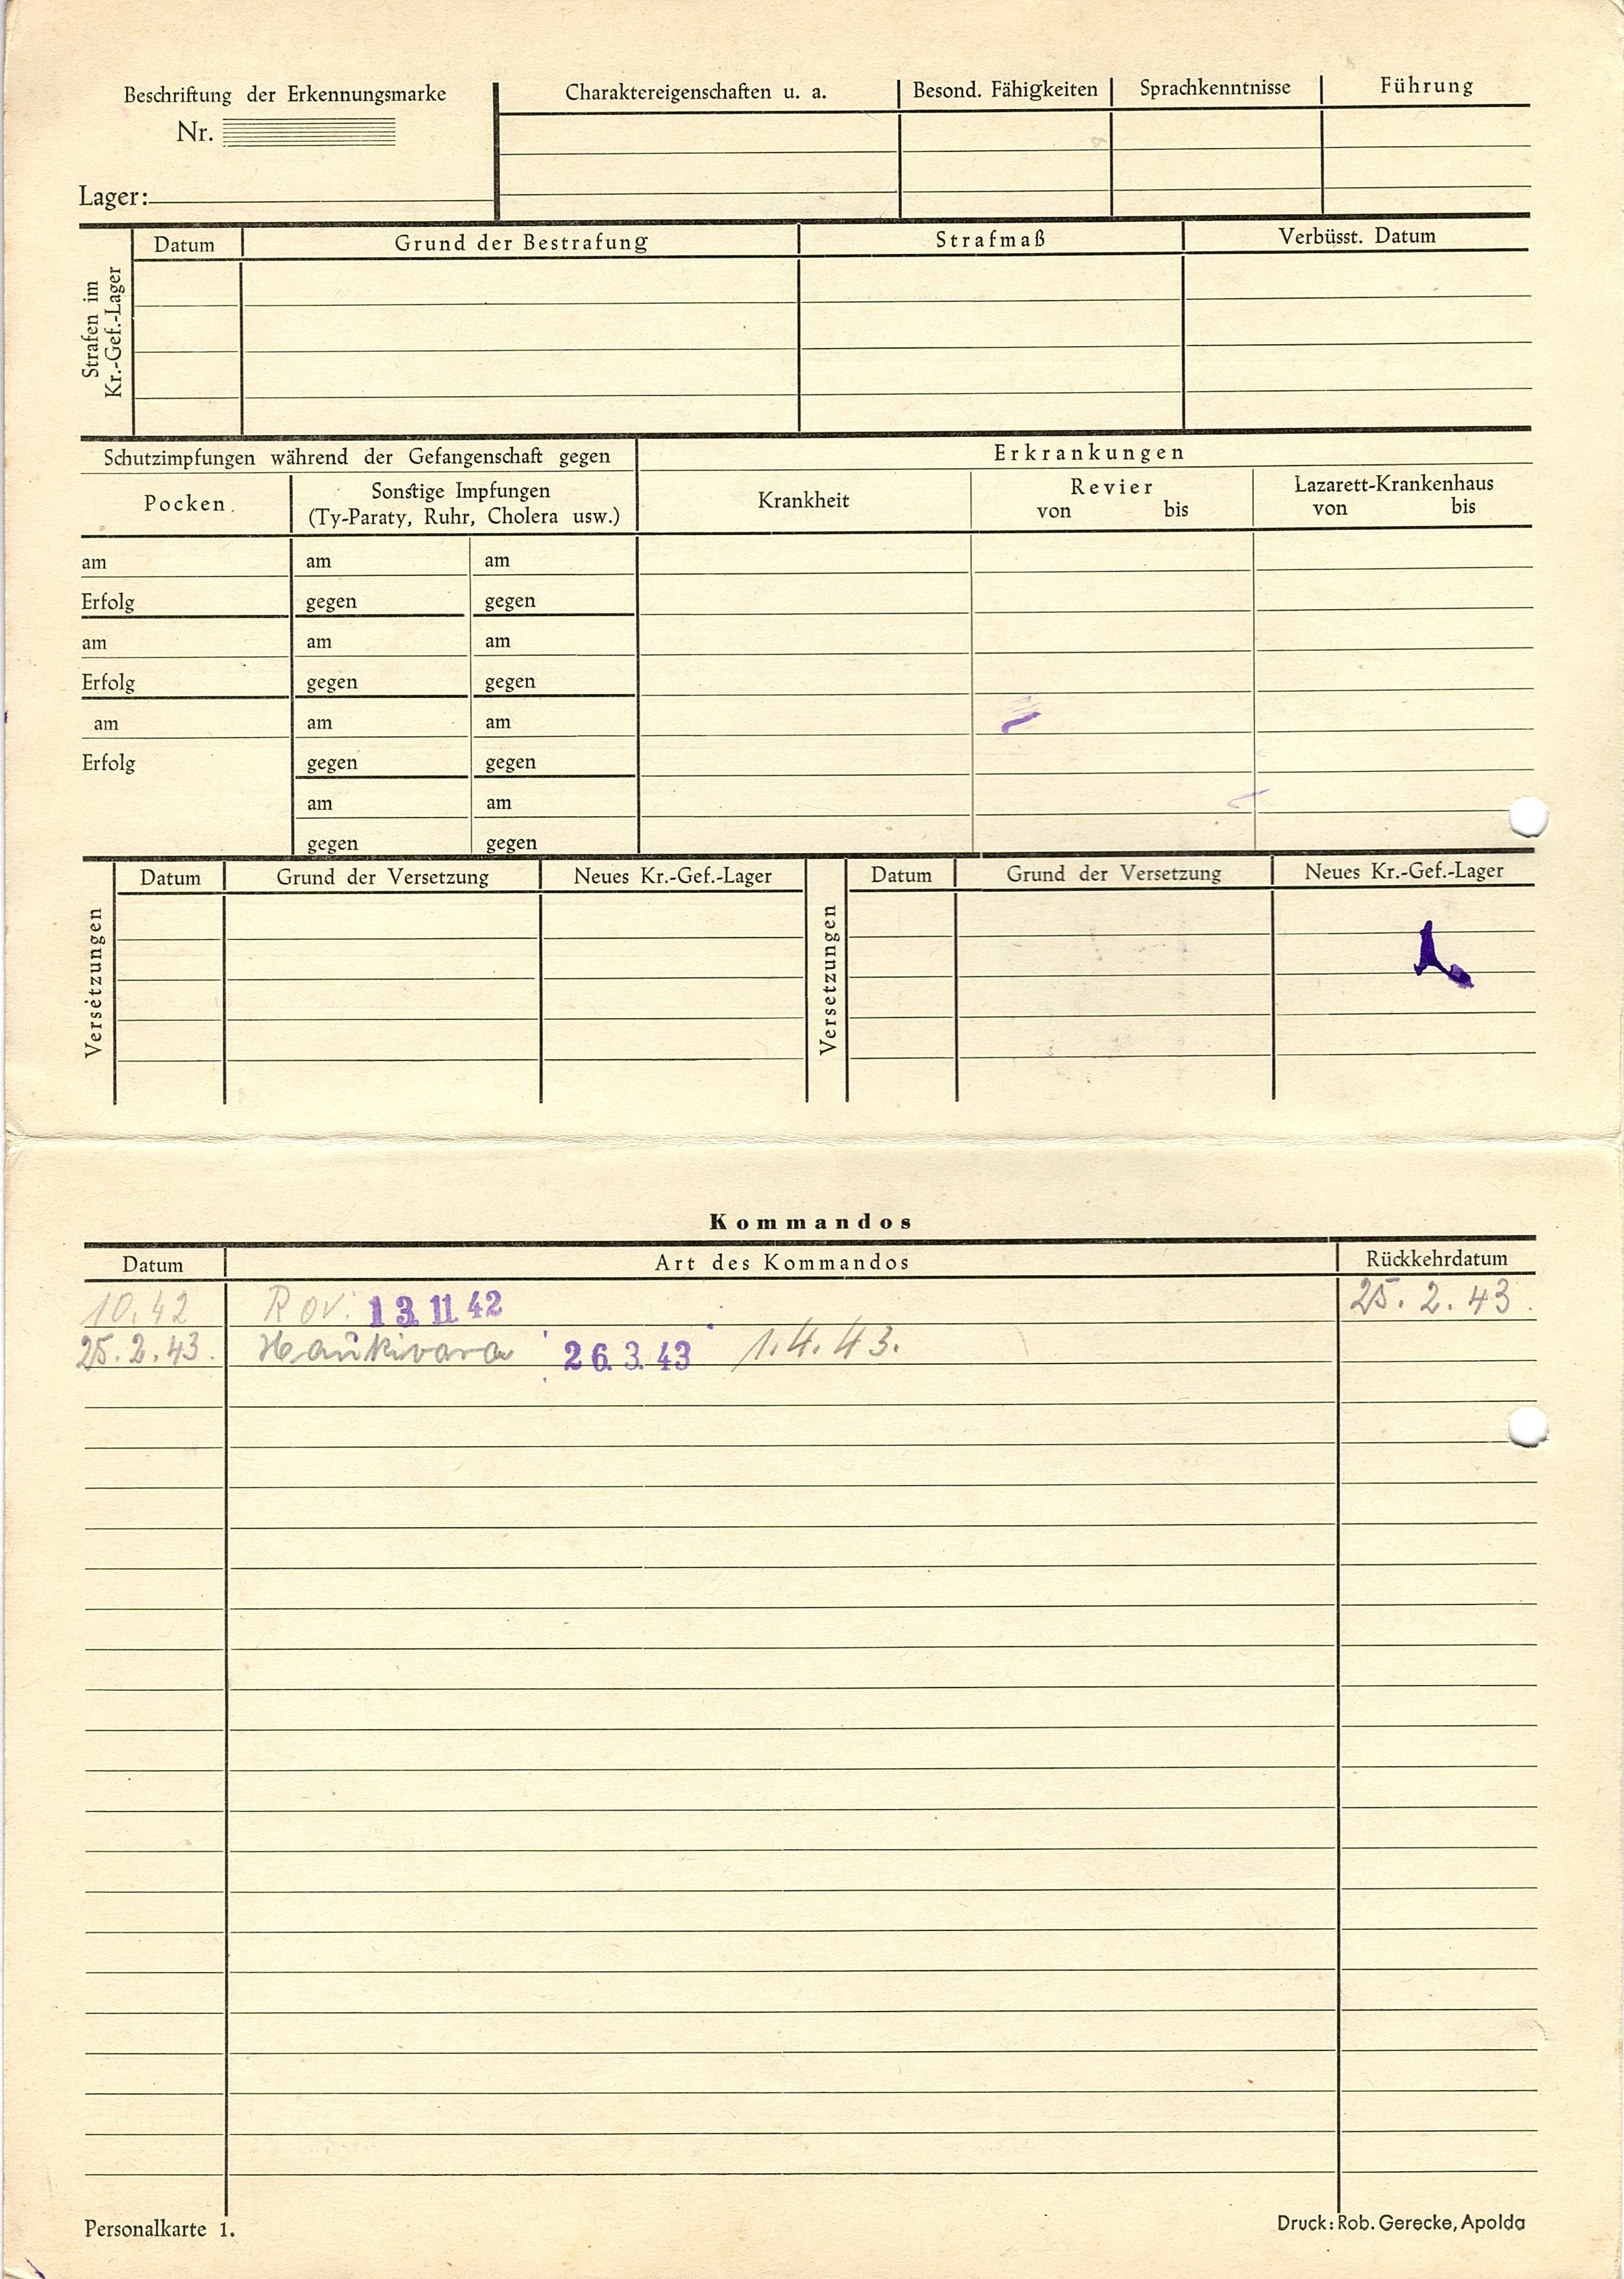 Beschriftung der Erkennungsmarke
Nr.
Lager:
Charaktereigenschaften u. a. Besond. Fähigkeiten Sprachkenntnisse Führung
Strafen im
Kr.-Gef.-Lager
Datum Grund der Bestrafung Strafmaß Verbüsst. Datum
Schutzimpfungen während der Gefangenschaft gegen Erkrankungen
Pocken Sonstige Impfungen
(Ty-Paraty, Ruhr, Cholera usw.)
Krankheit Revier
von bis
Lazarett-Krankenhaus
von bis
am am am
Erfolg gegen gegen
am am am
Erfolg gegen gegen
am am am
Erfolg gegen gegen
am am
gegen gegen
Versetzungen
Datum Grund der Versetzung Neues Kr.-Gef.-Lager
Versetzungen
Datum Grund der Versetzung Neues Kr.-Gef.-Lager
Kommandos
Datum Art des Kommandos Rückkehrdatum
10.42 Rov. 13.11.42 25.2.43.
25.2.43. Haukivara 26.3.43 1.4.43.
Personalkarte 1. Druck: Rob. Gerecke, Apolda